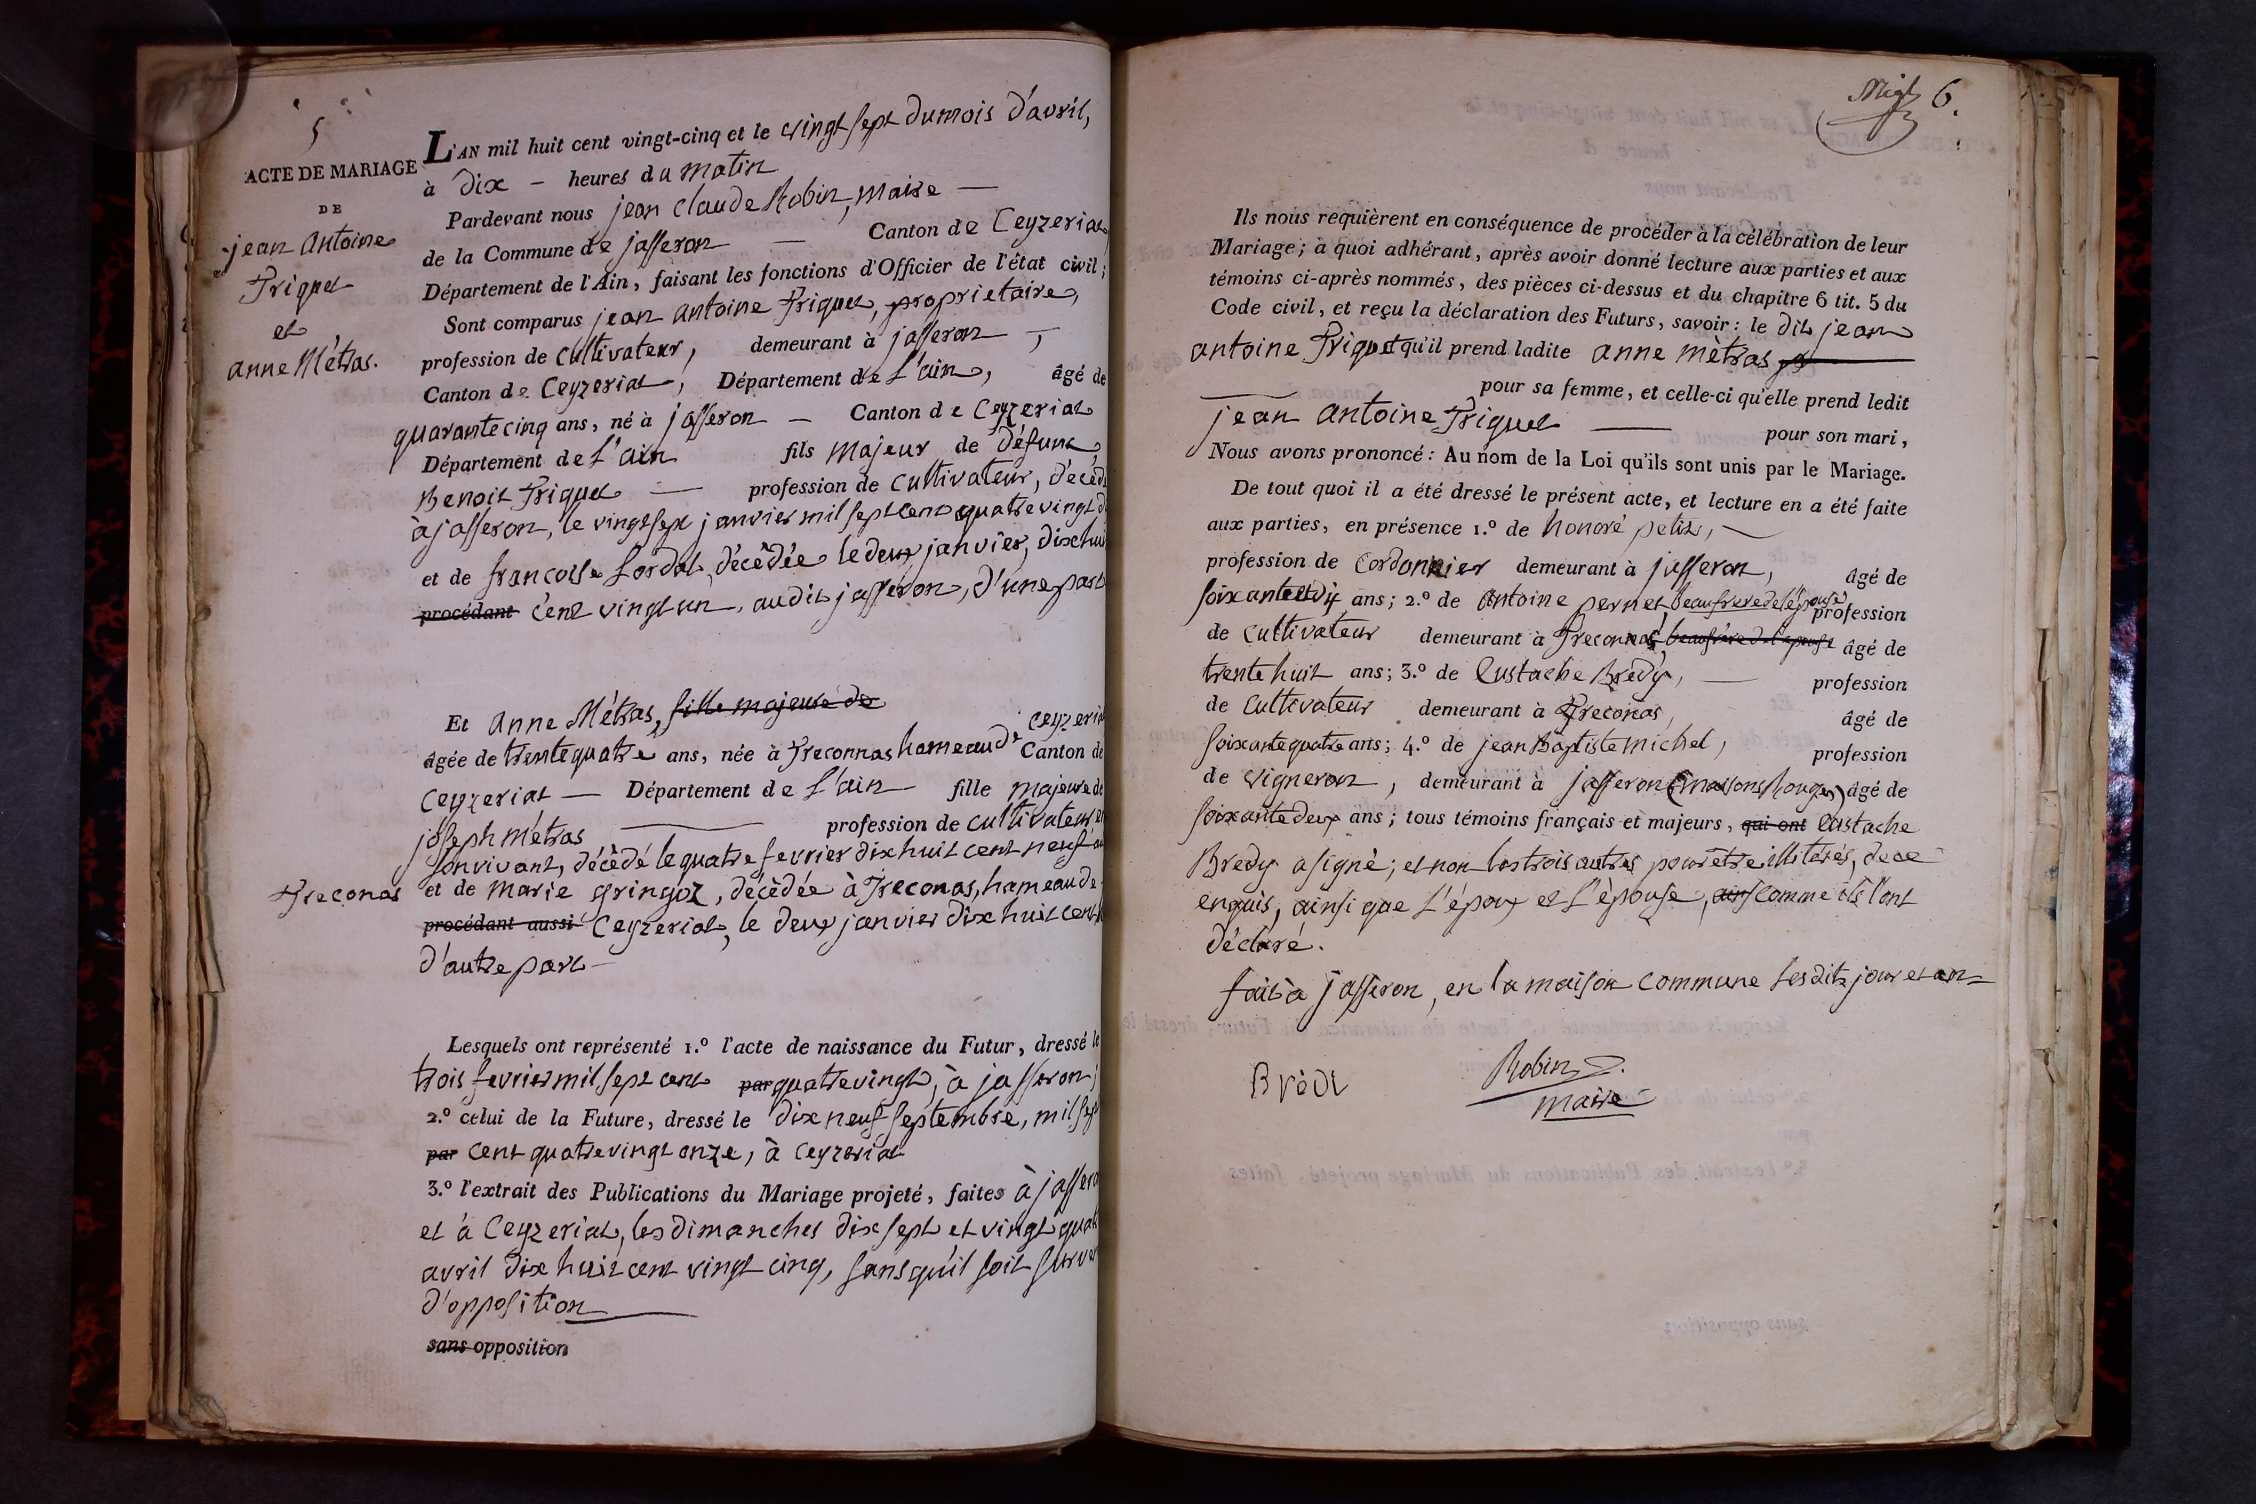 5
ACTE DE MARIAGE
DE
jean Antoine
Friquet
et
anne Métras.
L'AN mil huit cent vingt-cinq et le vingt sept du mois d'avril,
à dix – heures du matin
Pardevant nous jean claude Robin, maire —
de la Commune de jasseron — Canton de Ceyzeriat
Département de l'Ain, faisant les fonctions d'Officier de l'état civil;
Sont comparus jean antoine Friquet, proprietaire,
profession de cultivateur, demeurant à jasseron –
Canton de Ceyzeriat, Département de L'ain, âgé de
quarante cinq ans, né à jasseron – Canton de Ceyzeriat
Département de L'ain fils majeur de défunt
Benoit Friquet — profession de cultivateur, décédé
à jasseron, le vingt sept janvier mil sept cent quatre vingt
et de francoise Lordat, décèdée le deux janvier, dix huit
procédant cent vingt un, audit jasseron, d'une part
Et Anne Métras, fille majeure de
âgée de trente quatre ans, née à Treconnas hameau de Ceyzeriat Canton de
Ceyzeriat — Département de L'ain fille majeure de
joseph métras — profession de cultivateur en
son vivant, décèdé le quatre fevrier dix huit cent neuf au
Treconas
et de Marie Gringoz, décèdée à Treconas, hameau de
procédant aussi Ceyzeriat, le deux janvier dix huit cent
d'autre part –
Lesquels ont représenté 1.º l'acte de naissance du Futur, dressé le
trois fevrier mil sept cent par quatre vingt, à jasseron;
2.º celui de la Future, dressé le dix neuf septembre, mil sept
par cent quatre vingt onze, à Ceyzeriat
3.º l'extrait des Publications du Mariage projeté, faites à jasseron
et à Ceyzeriat, les dimanches dix sept et vingt quatre
avril dix huit cent vingt cinq, sans qu'il soit
d'opposition
sans opposition
6.
Ils nous requièrent en conséquence de procéder à la célébration de leur
Mariage; à quoi adhérant, après avoir donné lecture aux parties et aux
témoins ci-après nommés, des pièces ci-dessus et du chapitre 6 tit. 5 du
Code civil, et reçu la déclaration des Futurs, savoir: le dit jean
antoine Friquet qu'il prend ladite anne mètras
pour sa femme, et celle-ci qu'elle prend ledit
jean antoine Friquet — pour son mari,
Nous avons prononcé: Au nom de la Loi qu'ils sont unis par le Mariage.
De tout quoi il a été dressé le présent acte, et lecture en a été faite
aux parties, en présence 1.º de honoré petit, –
profession de Cordonnier demeurant à jasseron, âgé de
soixante et dix ans; 2.º de Antoine pernet, beaufrere de l'épouse profession
de cultivateur demeurant à Treconnas, beaufrère de l'epouse âgé de
trente huit ans; 3.º de Eustache Bredy, — profession
de Cultivateur demeurant à Treconas, âgé de
soixante quatre ans; 4.º de jean Baptiste michel, profession
de vigneron, demeurant à jasseron (maisons Rouges) âgé de
soixante deux ans; tous témoins français et majeurs, qui ont Eustache
Bredy a signé; et non les trois autres pour être illitérés, de ce
enquis, ainsi que L'époux et L'èpouse, ains comme ils l'ont
déclaré.
fait à jasseron, en la maison commune les dits jour et an –
Brédi
Robin
maire